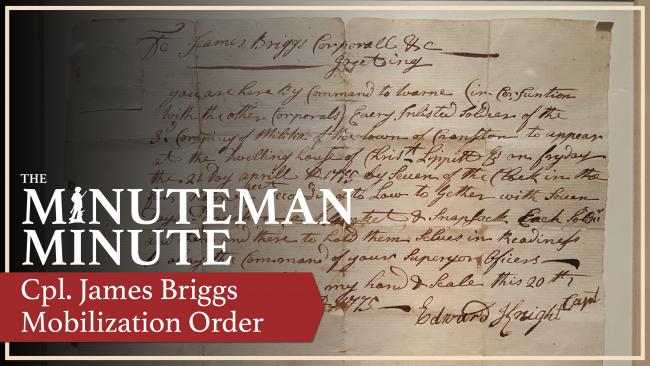 To James Briggs Corporall &c
Greeting
you are here By Command to warne (in Con Juntion
with the other Corporals) Every Inlisted Soldier of the
3d Company of Militia of the town of Cranston to appear
at the Dwelling house of Christr Lippitt on fryday
the Day aprill 1775 by Seven of the Clock in the
to Law to Gether with Seven
& Snapsack Each
and there to hold them Selves in Readiness
of yours Superyor Officers
my hand & Seale this 20th
1775 Edward Knight Capt
THE
MINUTEMAN
MINUTE
Cpl. James Briggs
Mobilization Order